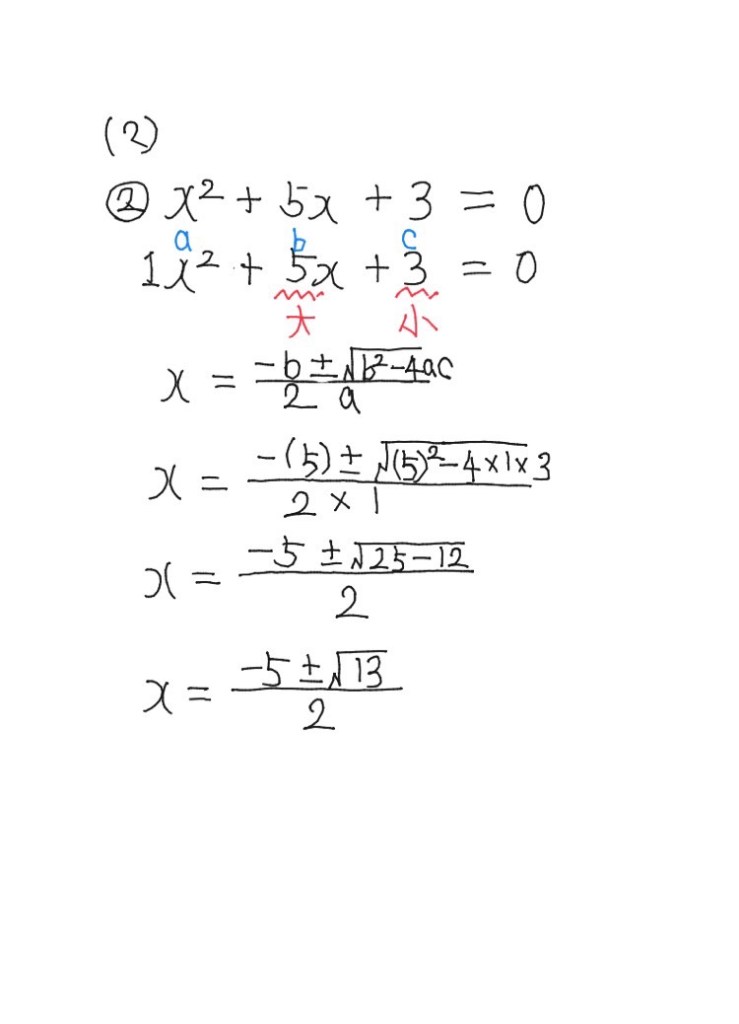 (2)
② x² + 5x + 3 = 0
a b c
1x² + 5x + 3 = 0
大 小
x = (-b ± √(b²-4ac)) / (2a)
x = (-(5) ± √((5)²-4×1×3)) / (2×1)
x = (-5 ± √(25-12)) / 2
x = (-5 ± √13) / 2